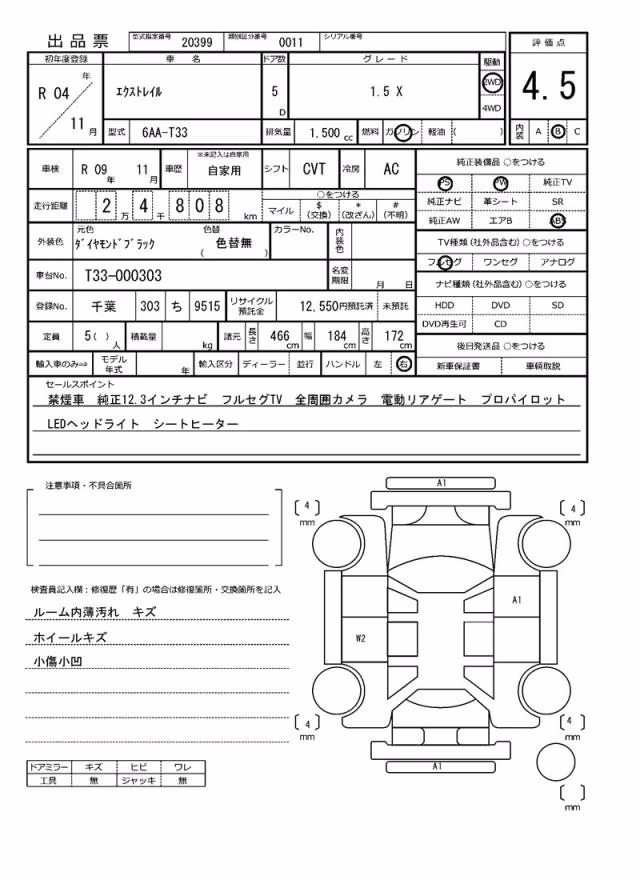 出品票 型式指定番号 20399 類別区分番号 0011 シリアル番号
初年度登録 車名 ドア数 グレード 駆動 評価点
R 04 年 11 月 エクストレイル 5 D 1.5 X 2WD 4WD 4.5
型式 6AA-T33 排気量 1.500 cc 燃料 ガソリン 軽油 ( ) 内装 A B C
車検 R 09 年 11 月 車歴 ※未記入は自家用 自家用 シフト CVT 冷房 AC
走行距離 2 万 4 千 8 0 8 km ○をつける
マイル $ (交換) * (改ざん) # (不明)
外装色 元色 ダイヤモンドブラック 色替 ( 色替無 ) カラーNo. 内装色
車台No. T33-000303 名変期限 月 日
登録No. 千葉 303 ち 9515 リサイクル預託金 12,550円預託済 未預託
定員 5( ) 人 積載量 kg 諸元 長さ 466 cm 幅 184 cm 高さ 172 cm
輸入車のみ⇒ モデル年式 年 輸入区分 ディーラー 並行 ハンドル 左 右
純正装備品 ○をつける
PS PW 純正TV
純正ナビ 革シート SR
純正AW エアB ABS
TV種類 (社外品含む) ○をつける
フルセグ ワンセグ アナログ
ナビ種類 (社外品含む) ○をつける
HDD DVD SD
DVD再生可 CD
後日発送品 ○をつける
新車保証書 車輌取説
セールスポイント
禁煙車 純正12.3インチナビ フルセグTV 全周囲カメラ 電動リアゲート プロパイロット
LEDヘッドライト シートヒーター
注意事項・不具合箇所
検査員記入欄：修復歴「有」の場合は修復箇所・交換箇所を記入
ルーム内薄汚れ キズ
ホイールキズ
小傷小凹
ドアミラー キズ ヒビ ワレ
工具 無 ジャッキ 無
A1
[ 4 ] mm [ 4 ] mm
A1
W2
[ 4 ] mm [ 4 ] mm
A1
[ ] mm